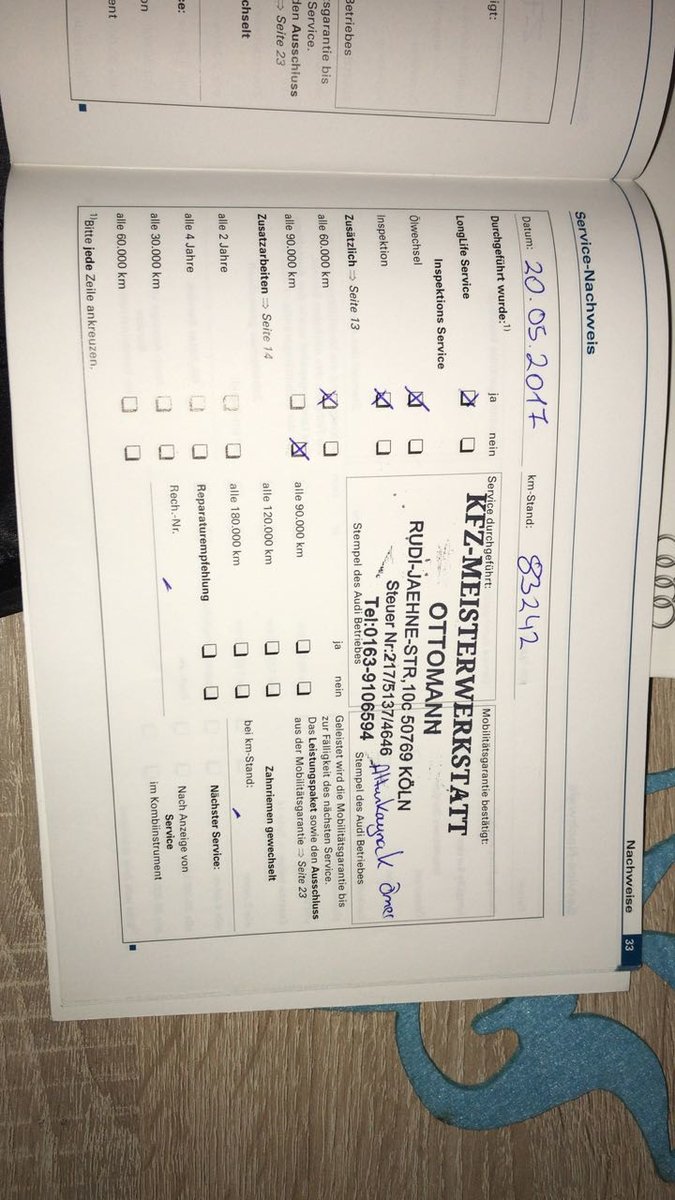 Nachweise 33
Service-Nachweis
Datum: 20.05.2017
km-Stand: 83242
Durchgeführt wurde:¹⁾ ja nein
LongLife Service
Inspektions Service
Ölwechsel
Inspektion
Zusätzlich ⇒ Seite 13
alle 60.000 km
alle 90.000 km
Zusatzarbeiten ⇒ Seite 14
alle 2 Jahre
alle 4 Jahre
alle 30.000 km
alle 60.000 km
¹⁾Bitte jede Zeile ankreuzen.
Service durchgeführt:
KFZ-MEISTERWERKSTATT
OTTOMANN
RUDI-JAEHNE-STR,10c 50769 KÖLN
Steuer Nr:217/5137/4646
Tel:0163-9106594
Stempel des Audi Betriebes
Mobilitätsgarantie bestätigt:
Stempel des Audi Betriebes
ja nein
alle 90.000 km
alle 120.000 km
alle 180.000 km
Reparaturempfehlung
Rech.-Nr.
Geleistet wird die Mobilitätsgarantie bis
zur Fälligkeit des nächsten Service.
Das Leistungspaket sowie den Ausschluss
aus der Mobilitätsgarantie ⇒ Seite 23
Zahnriemen gewechselt
bei km-Stand:
Nächster Service:
Nach Anzeige von
Service
im Kombiinstrument
igt:
Betriebes
sgarantie bis
Service.
den Ausschluss
⇒ Seite 23
chselt
se:
on
ent